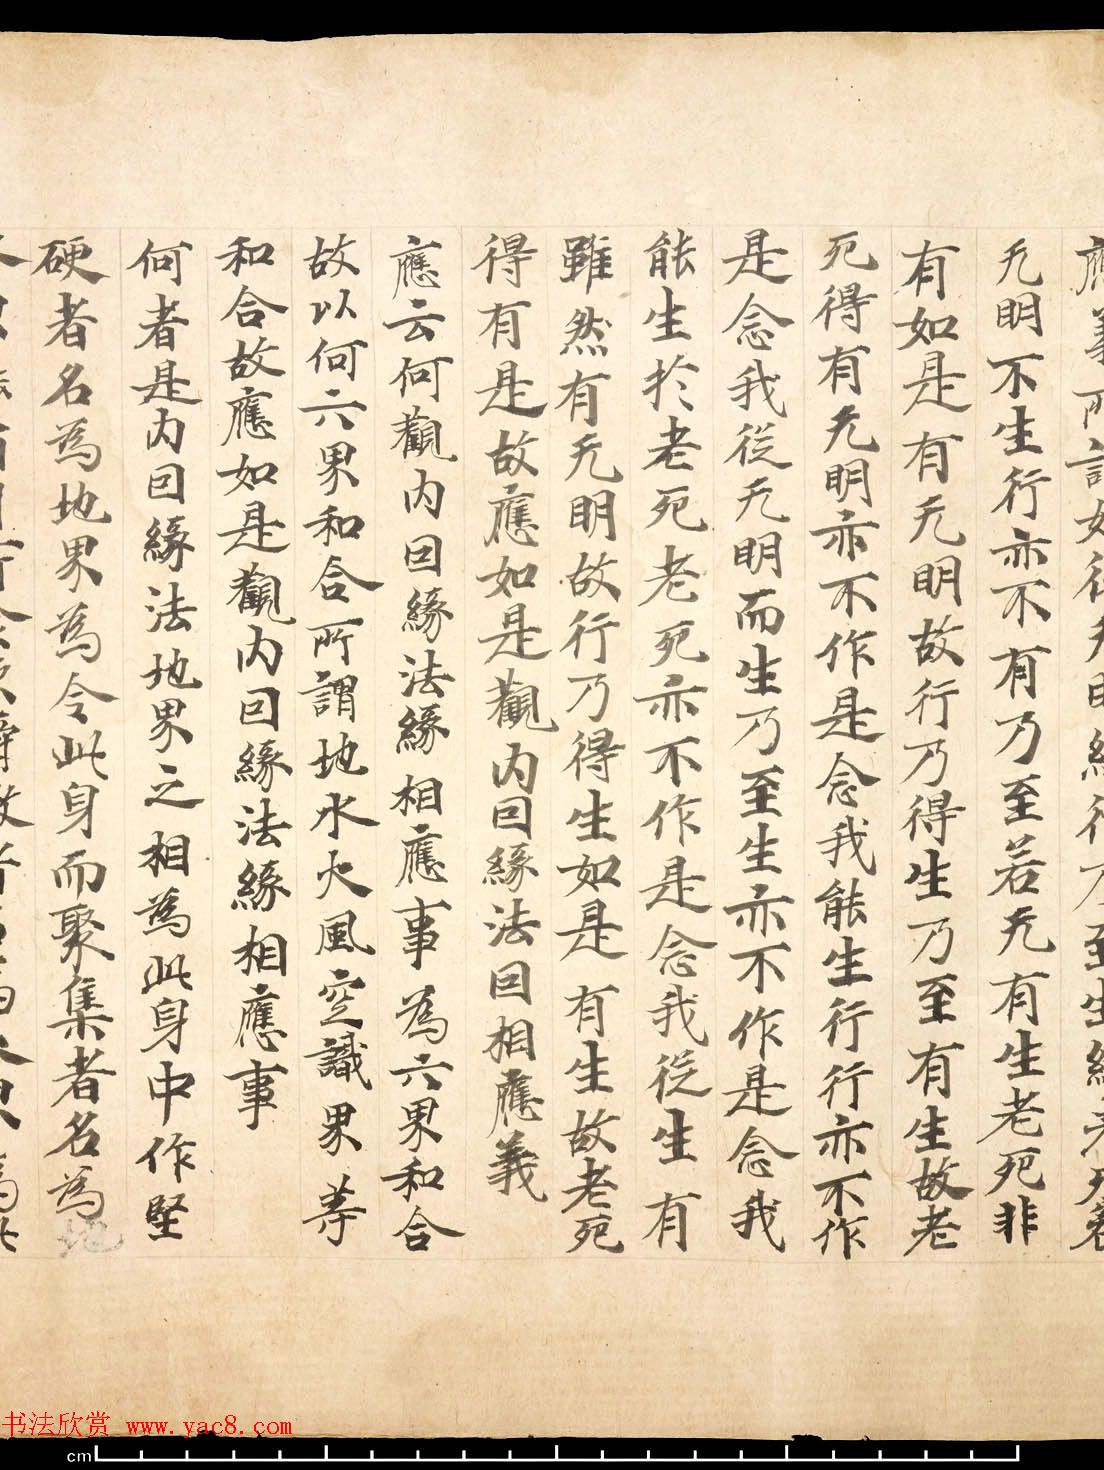 應義所謂始從无明緣行乃至生緣老死若
无明不生行亦不有乃至若无有生老死非
有如是有无明故行乃得生乃至有生故老
死得有无明亦不作是念我能生行行亦不作
是念我從无明而生乃至生亦不作是念我
能生於老死老死亦不作是念我從生有
雖然有无明故行乃得生如是有生故老死
得有是故應如是觀内因緣法因相應義
應云何觀内因緣法緣相應事為六界和合
故以何六界和合所謂地水火風空識界等
和合故應如是觀内因緣法緣相應事
何者是内因緣法地界之相為此身中作堅
硬者名為地界為令此身而聚集者名為地
书法欣赏 www.yac8.com
cm